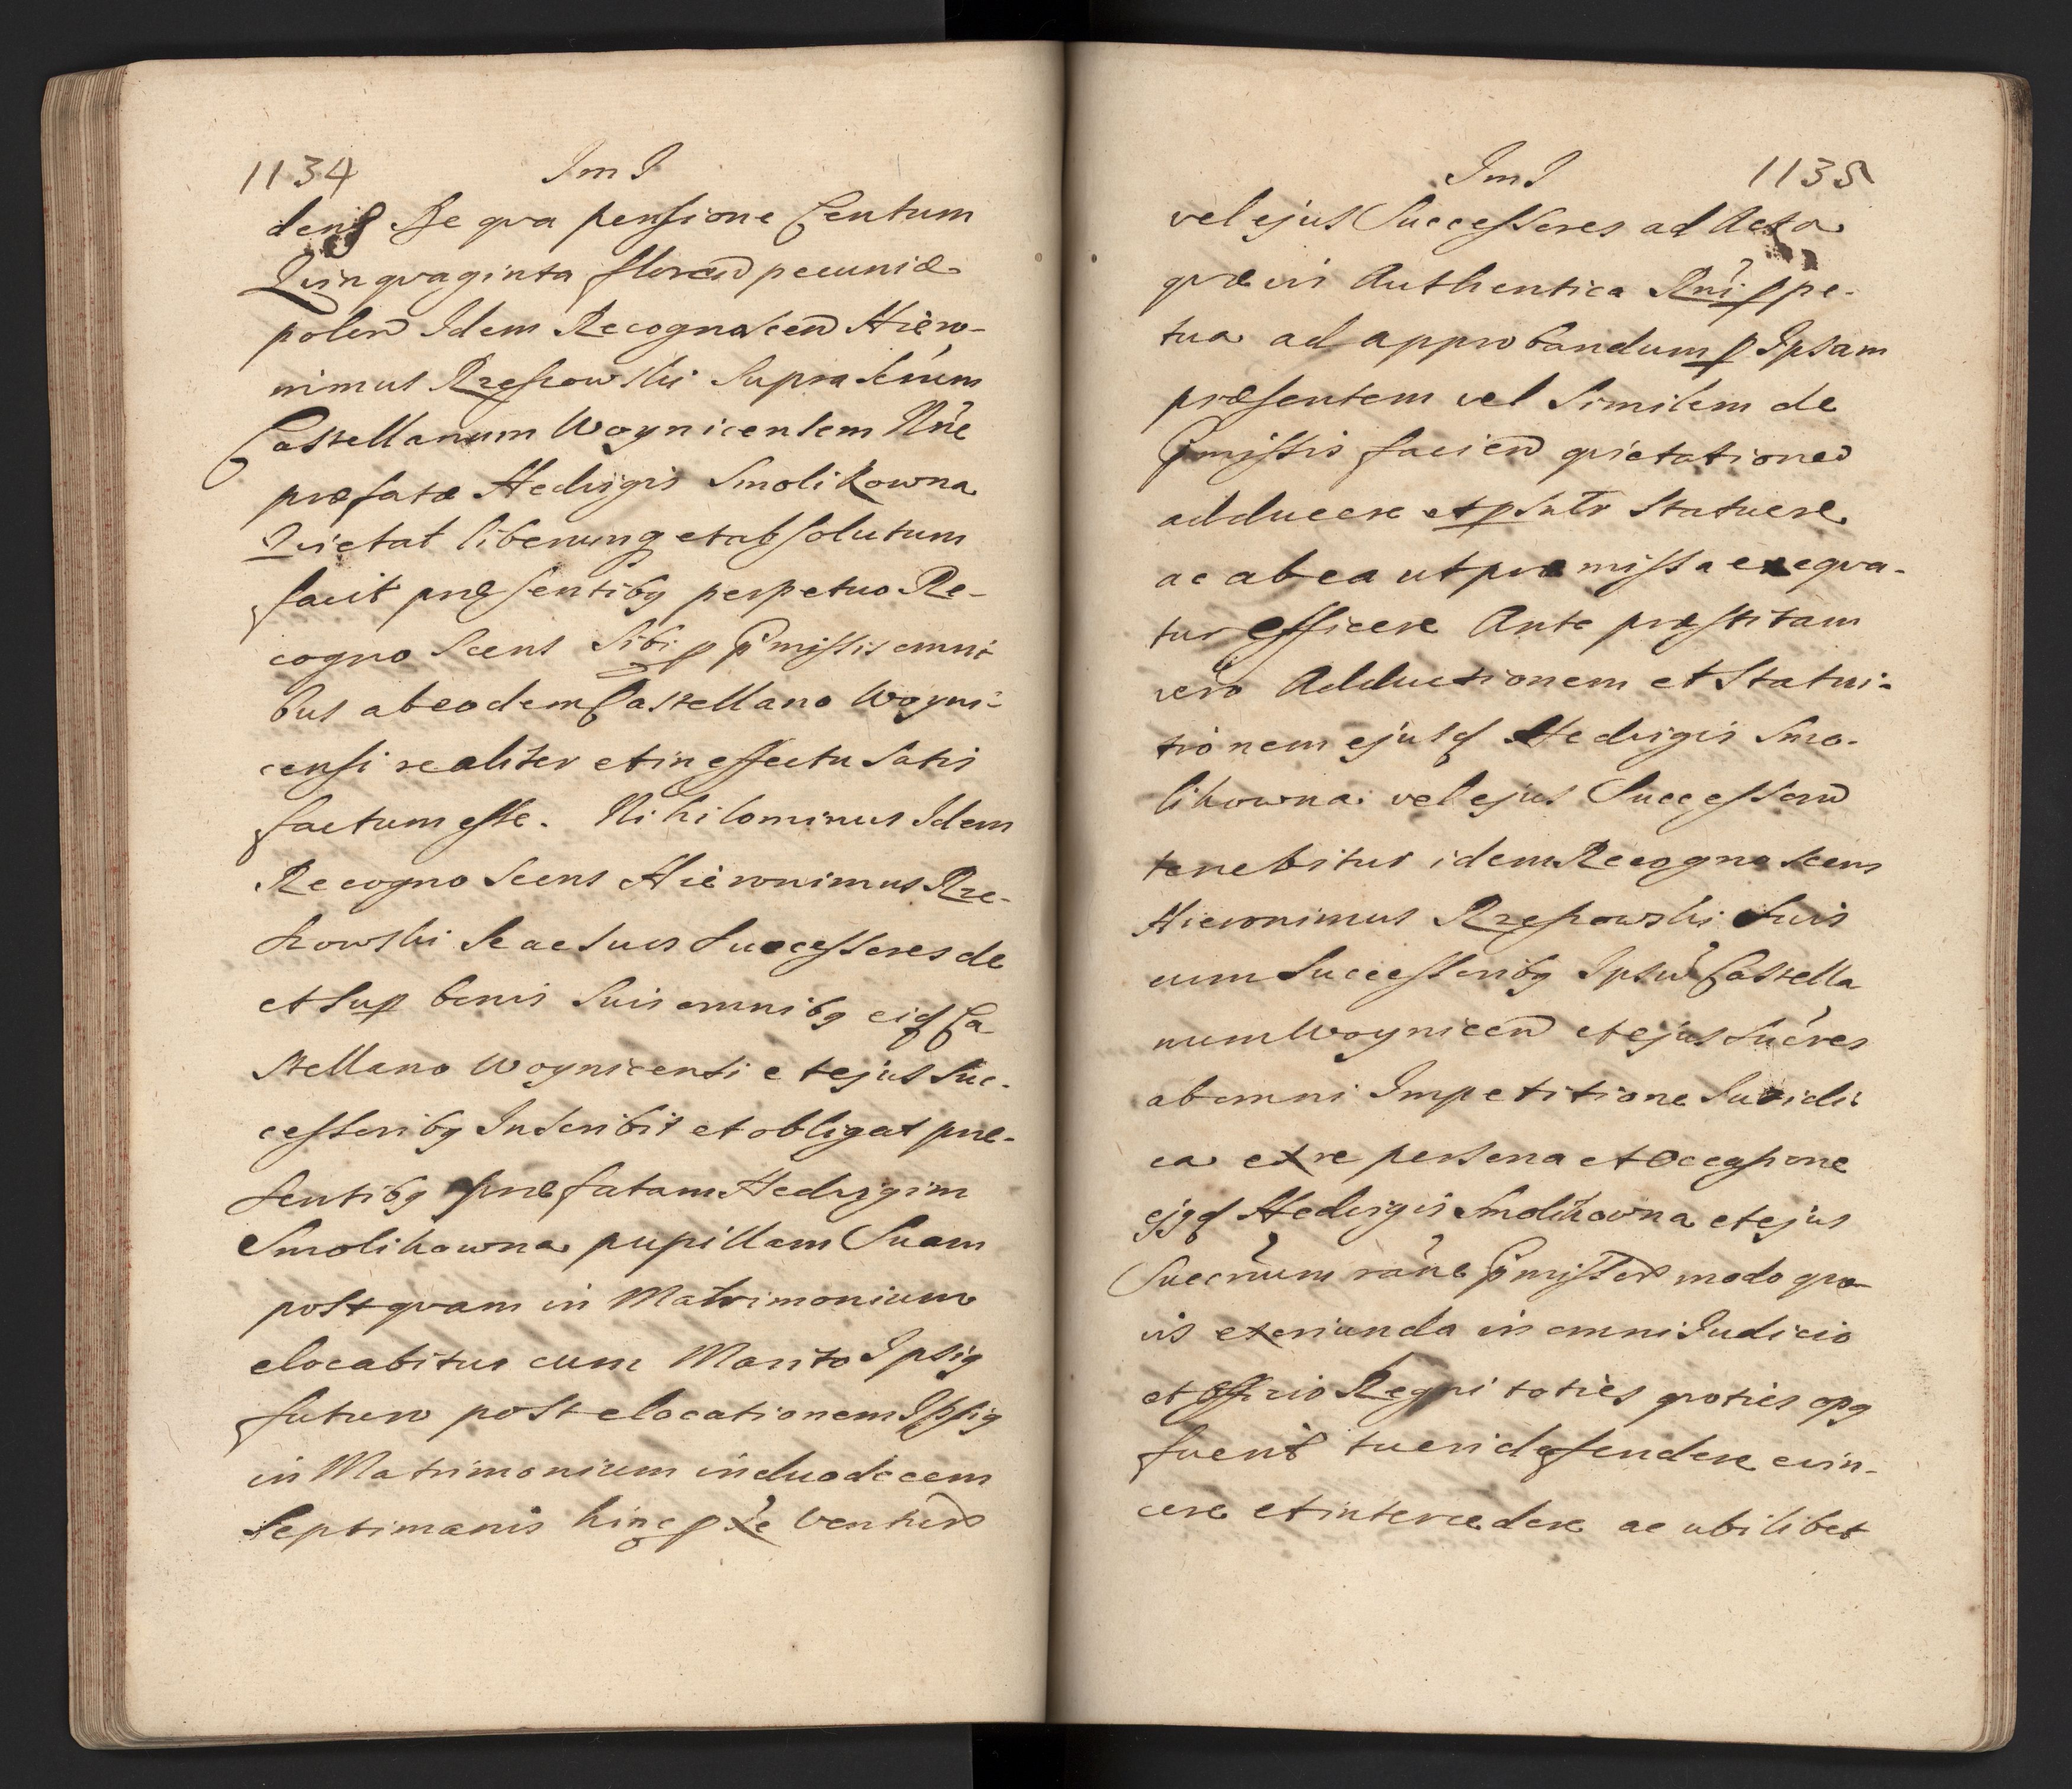 1134 ImI
dens De qva pensione Centum
Qvinqvaginta floren pecuniæ
polen Idem Recognoscen Hiero-
nimus Rzeszowski Suprascrum
Castellanum Woynicensem Nne
præfatæ Hedvigis Smolikowna
Qvietat liberumq et absolutum
facit præsentibq perpetuo Re-
cognoscens Sibi p pmissis omni
bus ab eodem Castellano Woyni-
censi realiter et in effectu Satis
factum esse. Nihilominus Idem
Recognoscens Hieronimus Rze-
szowski Se ac Suos Successores de
et Sup bonis Suis omnibq eid Ca
stellano Woynicensi et ejus Suc-
cessoribq Inscribit et obligat præ-
sentibq præfatam Hedvigim
Smolikowna pupillam Suam
postqvam in Matrimonium
elocabitur cum Marito Ipsiq
futuro post elocationem Ipsiq
in Matrimonium in duodecem
Septimanis hinc pxe Ventur
ImI 1135
vel ejus Successores ad Acta
qvævis Authentica Rni ppe-
tua ad approbandum p Ipsam
præsentem vel Similem de
pmissis facien qvietatione
adducere et psntr Statuere
ac ab ea ut præmissa exeqva-
tur efficere Ante præstitam
vero Adductionem et Statui-
tionem ejusd Hedvigis Smo-
likowna vel ejus Successorum
tenebitur idem Recognoscens
Hieronimus Rzeszowski Suis
cum Successoribq Ipsum Castella
num Woynicen et ejus Sucres
ab omni Impetitione Iuridi
ca ex re persona et Occasione
ejqd Hedvigis Smolikowna et ejus
Succrum rane pmissor modo qvo
vis exoriunda in omni Iudicio
et Officio Regni toties qvoties opq
fuerit tueri defendere evin-
cere et intercedere ac ubilibet